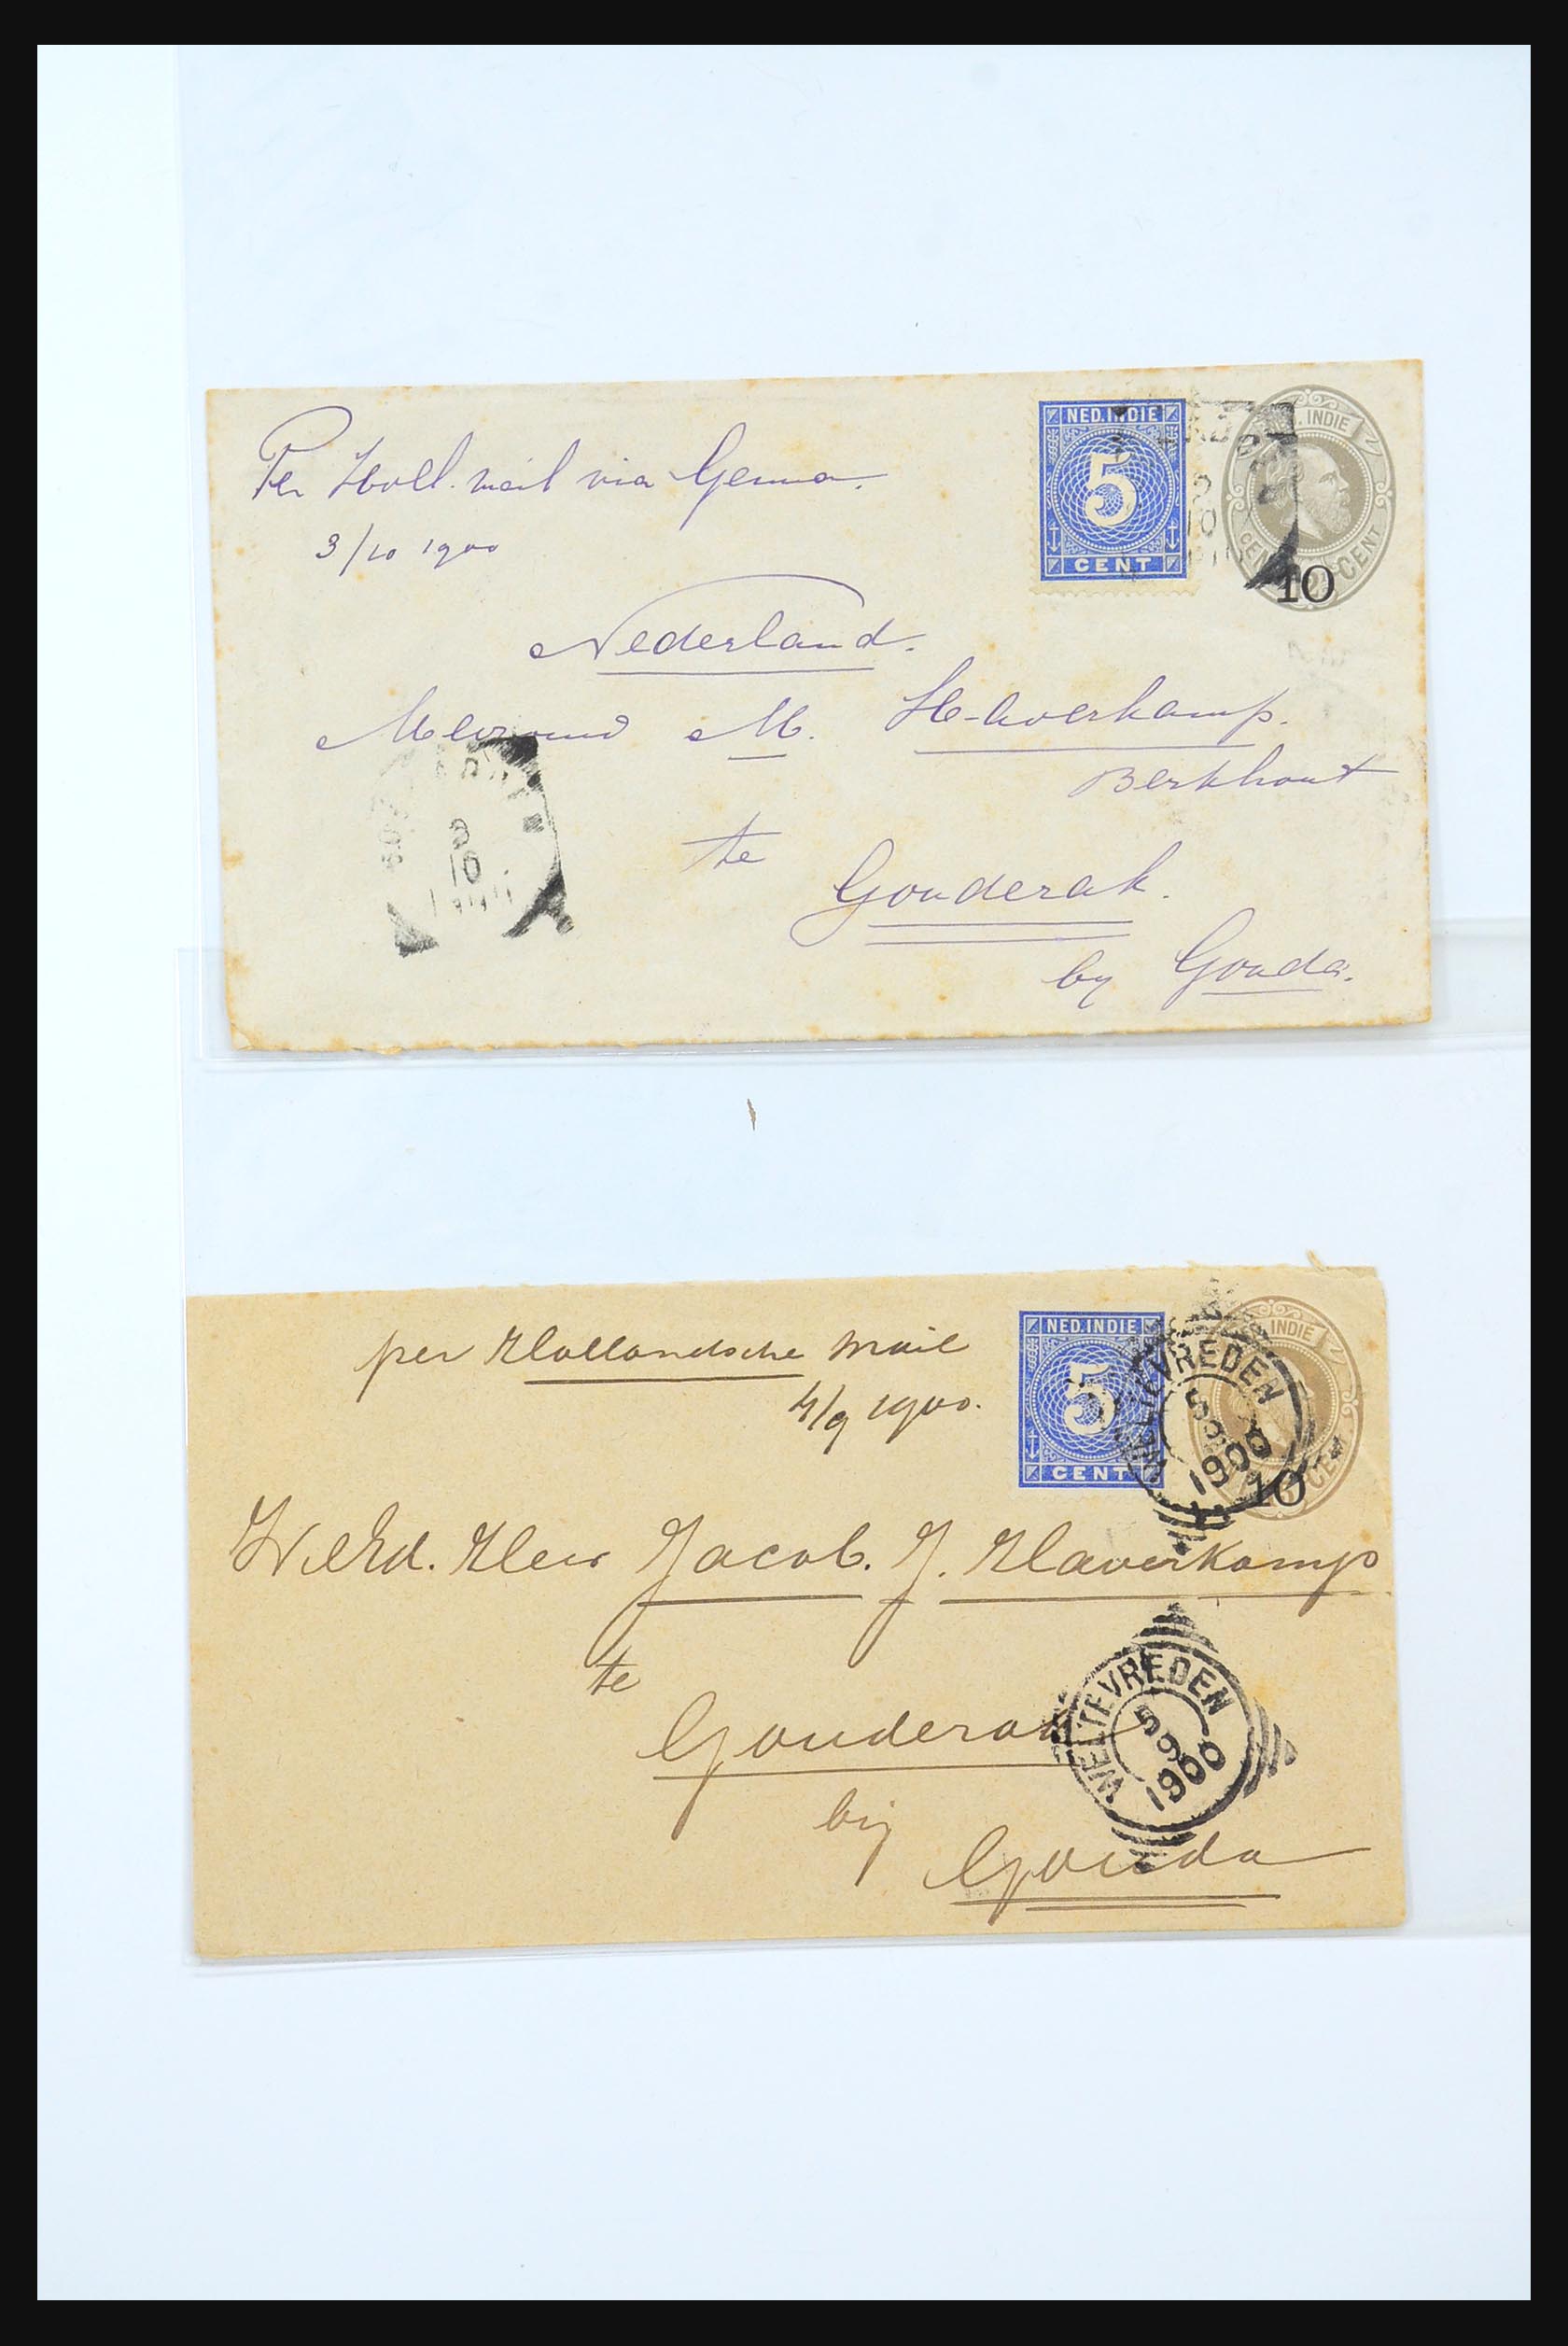 Per Holl. mail via Genua.
3/10 1900
NED. INDIE
5
CENT
INDIE
CENT
10
Nederland.
Mevrouw M. Haverkamp.
Berkhout
te
Gouderak.
by Gouda.
3
10
per Hollandsche mail
4/9 1900.
NED. INDIE
5
CENT
INDIE
10
WELTEVREDEN
5
9
1900
WelEd. Heer Jacob. J. Haverkamp
te
Gouderak
bij
Gouda
WELTEVREDEN
5
9
1900